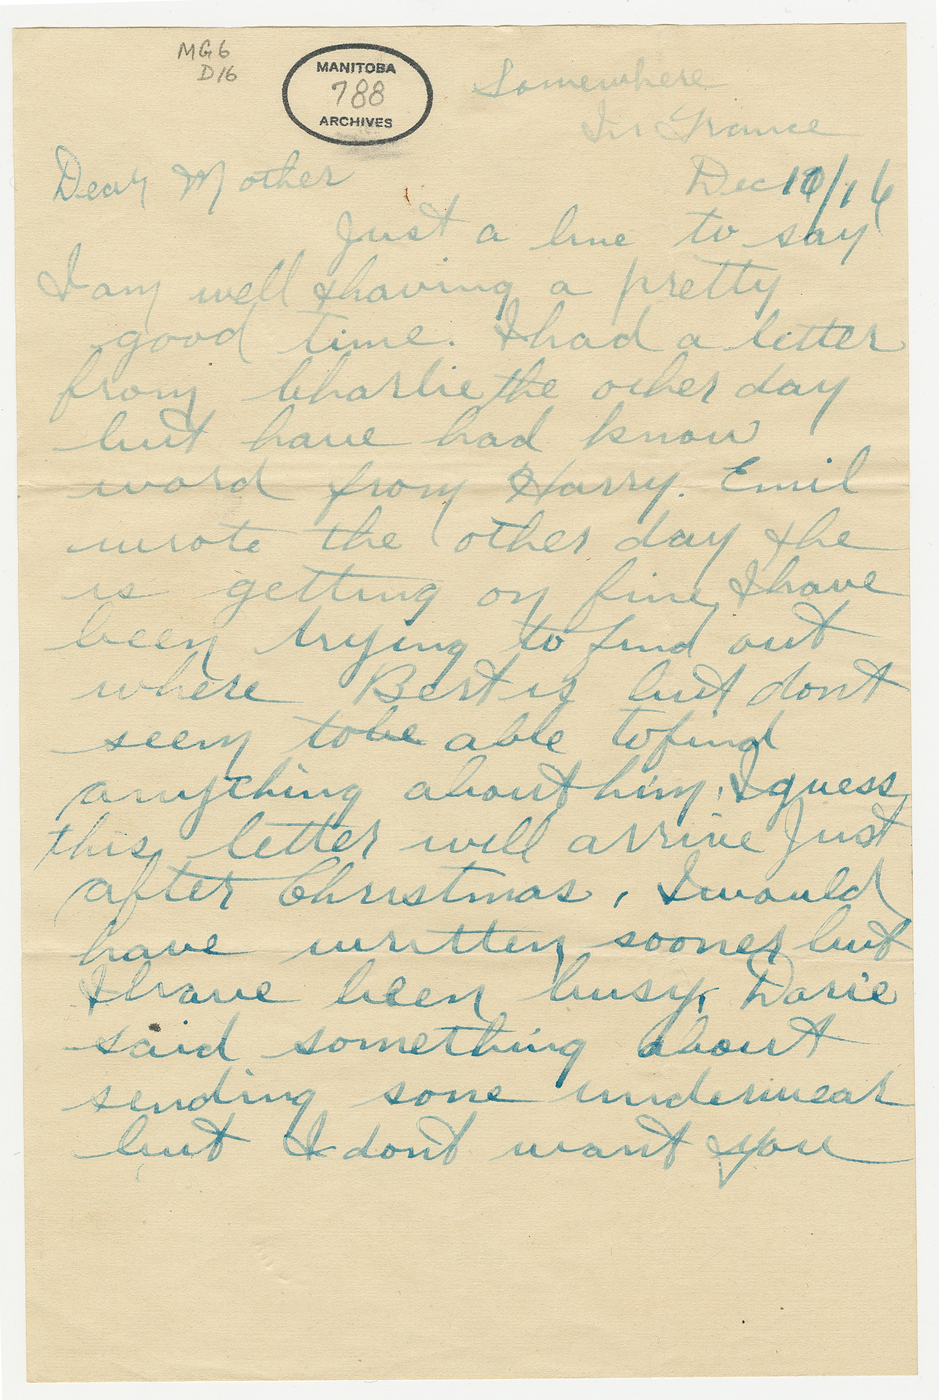 MG6
D16
MANITOBA
788
ARCHIVES
Somewhere
In France
Dear Mother
Dec 10/16
Just a line to say
I am well & having a pretty
good time. I had a letter
from Charlie the other day
but have had know
word from Harry. Emil
wrote the other day & he
is getting on fine, I have
been trying to find out
where Bert is but dont
seem to be able to find
anything about him. I guess
this letter will arrive just
after Christmas, I would
have written sooner but
I have been busy, Dorie
said something about
sending some underwear
but I dont want you